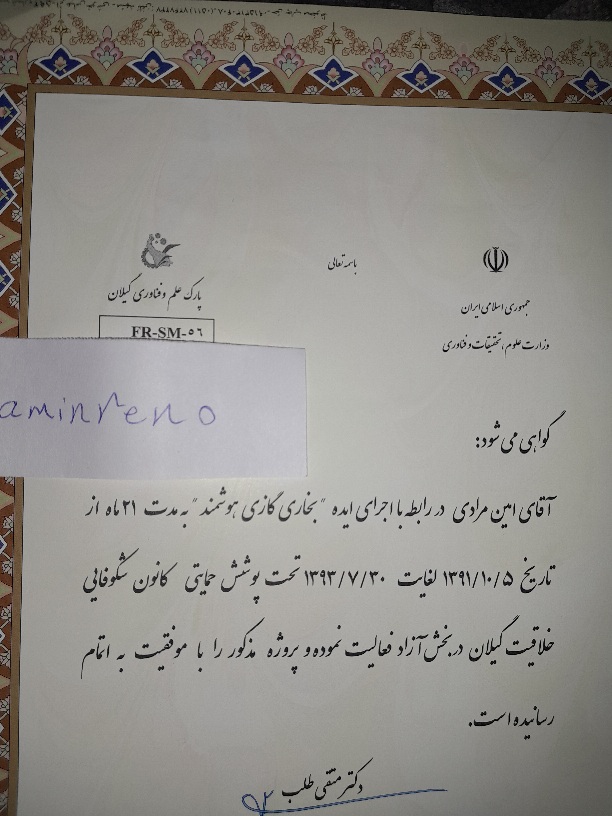 باسمه تعالی
جمهوری اسلامی ایران
وزارت علوم، تحقیقات و فناوری
پارک علم و فناوری گیلان
FR-SM-۵۶
aminreno
گواهی می شود:
آقای امین مرادی در رابطه با اجرای ایده "بخاری گازی هوشمند" به مدت ۲۱ ماه از
تاریخ ۱۳۹۱/۱۰/۵ لغایت ۱۳۹۳/۷/۳۰ تحت پوشش حمایتی کانون شکوفایی
خلاقیت گیلان در بخش آزاد فعالیت نموده و پروژه مذکور را با موفقیت به اتمام
رسانیده است.
دکتر متقی طلب